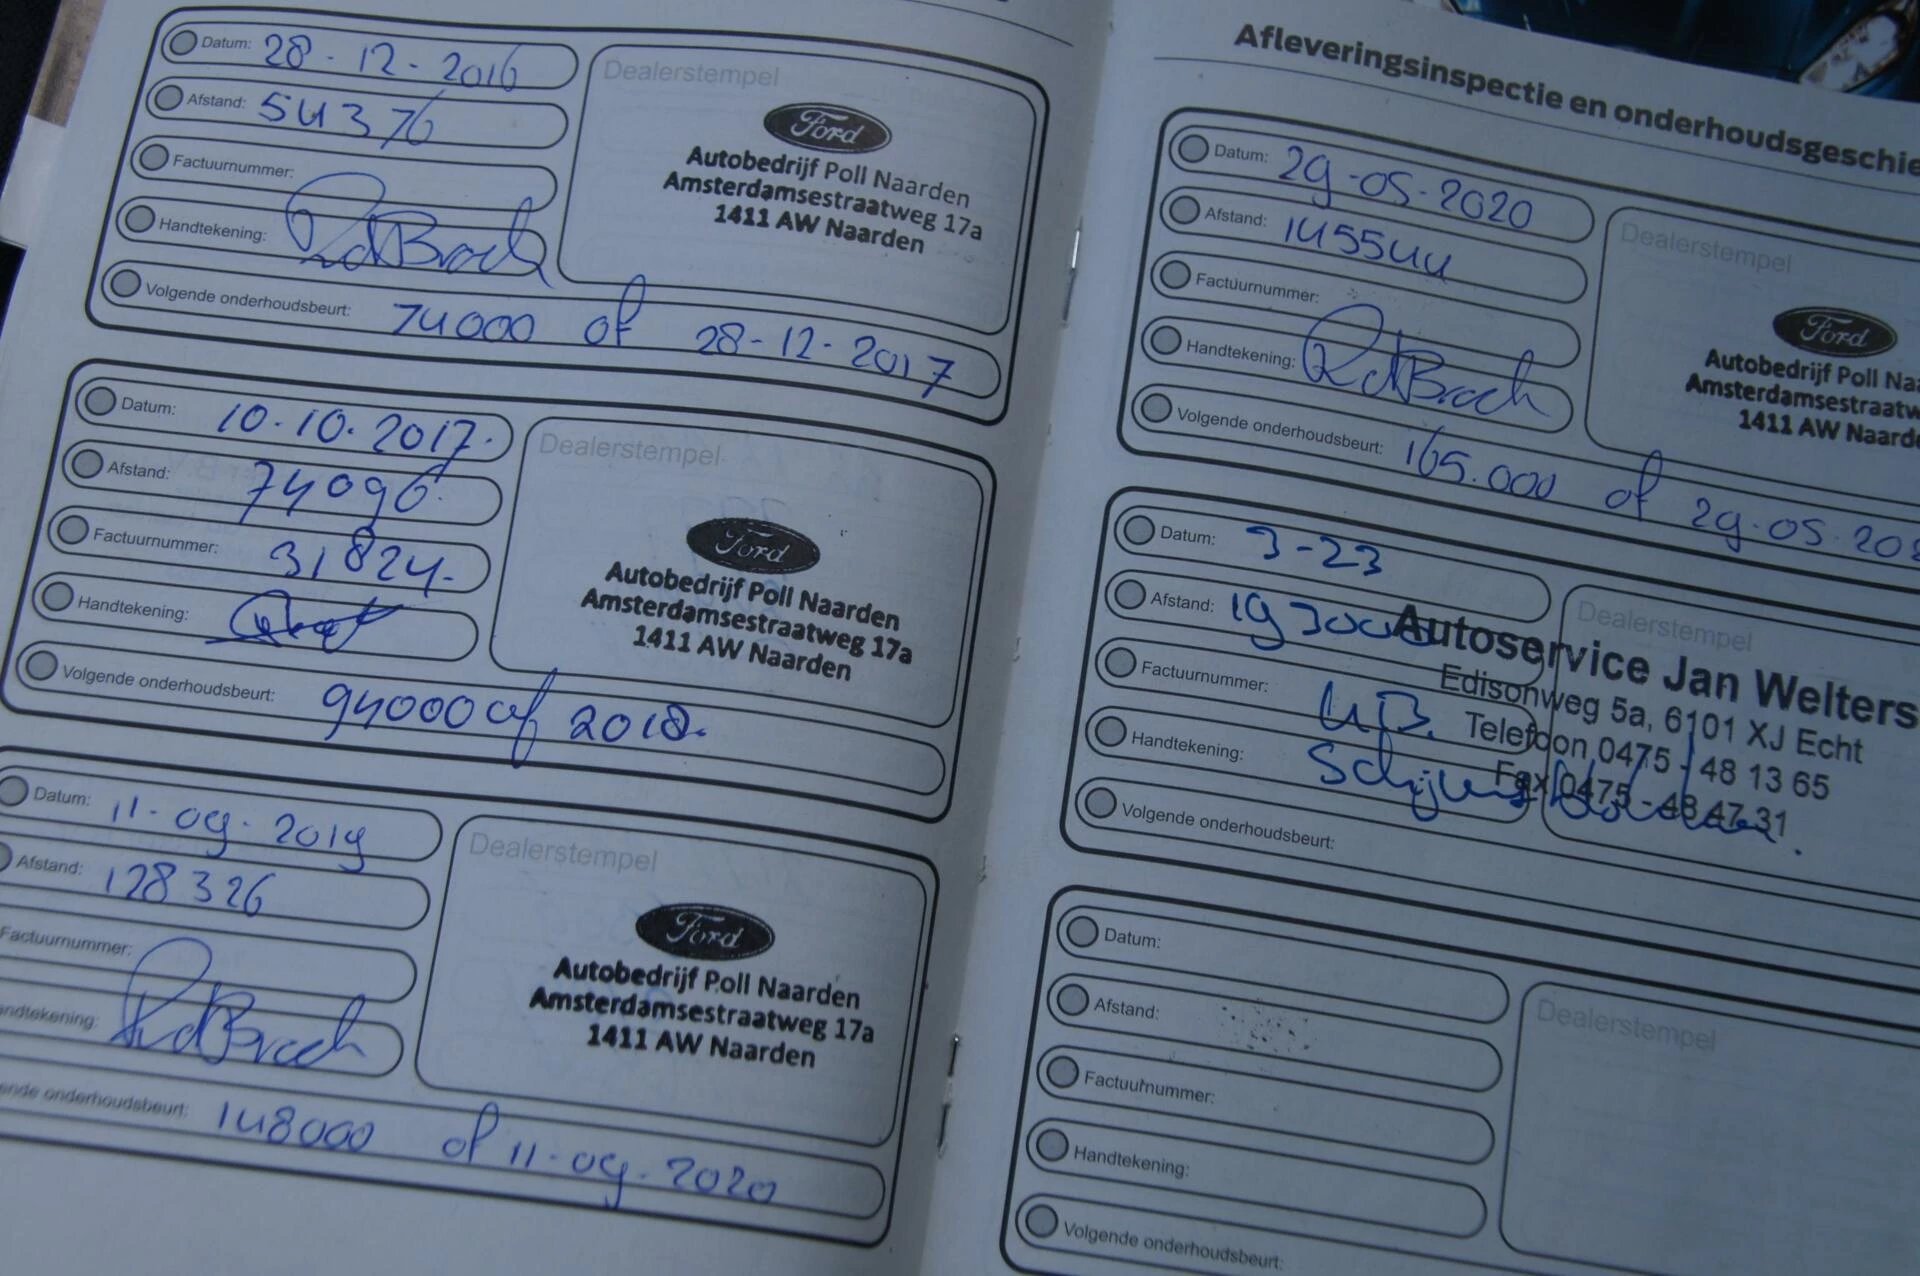 Datum: 28-12-2016
Afstand: 54376
Factuurnummer:
Handtekening:
Volgende onderhoudsbeurt: 74000 of 28-12-2017
Dealerstempel
Ford
Autobedrijf Poll Naarden
Amsterdamsestraatweg 17a
1411 AW Naarden
Datum: 10.10.2017.
Afstand: 74096.
Factuurnummer: 31824.
Handtekening:
Volgende onderhoudsbeurt: 94000 of 2018.
Dealerstempel
Ford
Autobedrijf Poll Naarden
Amsterdamsestraatweg 17a
1411 AW Naarden
Datum: 11-09-2019
Afstand: 128326
Factuurnummer:
ndtekening:
ende onderhoudsbeurt: 148000 of 11-09-2020
Dealerstempel
Ford
Autobedrijf Poll Naarden
Amsterdamsestraatweg 17a
1411 AW Naarden
Afleveringsinspectie en onderhoudsgeschie
Datum: 29-05-2020
Afstand: 145544
Factuurnummer:
Handtekening:
Volgende onderhoudsbeurt: 165.000 of 29-05-202
Dealerstempel
Ford
Autobedrijf Poll Naa
Amsterdamsestraatw
1411 AW Naarde
Datum: 3-23
Afstand: 193000
Factuurnummer:
Handtekening:
Volgende onderhoudsbeurt:
Dealerstempel
Autoservice Jan Welters
Edisonweg 5a, 6101 XJ Echt
Telefoon 0475 - 48 13 65
Fax 0475 - 48 47 31
Datum:
Afstand:
Factuurnummer:
Handtekening:
Volgende onderhoudsbeurt:
Dealerstempel